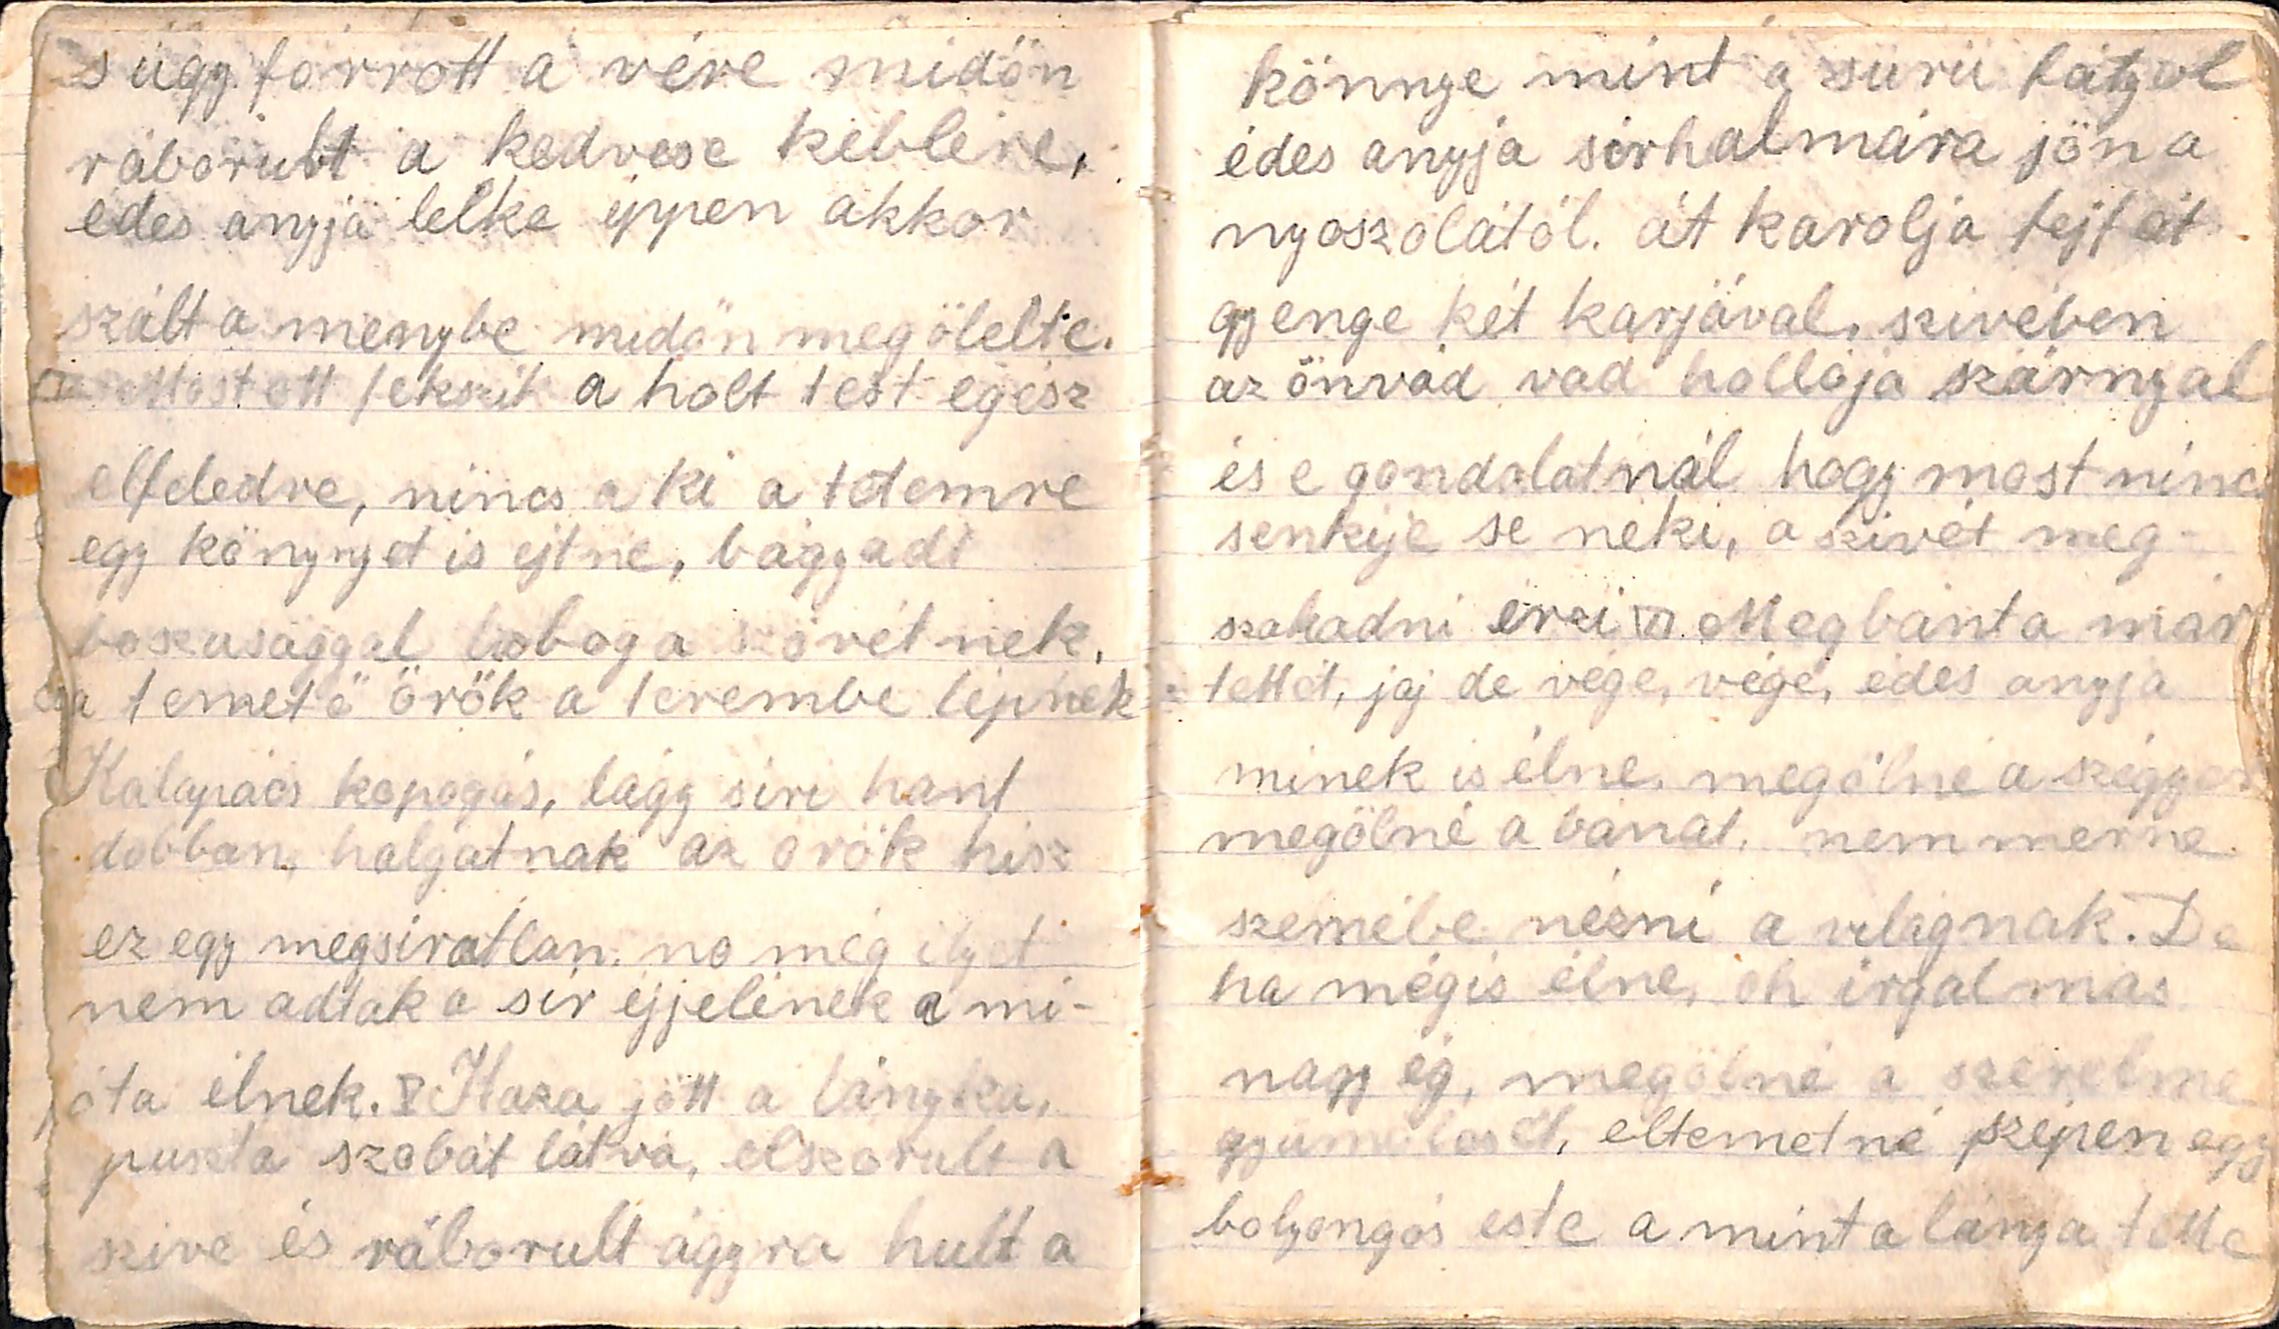 s úgy forrott a vére midőn
ráborult a kedvese keblére,
édes anyja lelke éppen akkor
szált a menybe midőn megölelte.
Most ott fekszik a holt test egész
elfeledve, nincs a ki a tetemre
egy könynyet is ejtne, bágyadt
boszusággal lobog a szövétnek,
a temető örök a terembe lépnek
Kalapács kopogás, lágy siri hant
dobban, halgatnak az örök hisz
ez egy megsiratlan, no még ilyet
nem adtak a sir éjjelének a mi-
óta élnek. V Haza jött a lányka,
puszta szobát látva, elszorult a
szive és ráborult ágyra hult a
könnye mint a sürü
édes anyja sirhalmára jön a
nyoszolától. át karolja fejfát
gyenge két karjával, szivében
az önvád vad hollója szárnyal
és e gondolatnál hogy most nincs
senkije se neki, a szivét meg-
szakadni érzi VI. Megbánta már
tettét, jaj de vége, vége, édes anyja
minek is élne, megölné a szégyen
megölné a bánat, nem merne
szemébe nézni a világnak. De
ha mégis élne, oh irgalmas
nagy ég, megölné a szerelme
gyümölcsét, eltemetné szépen egy
bolyongós este a mint a lánya tette